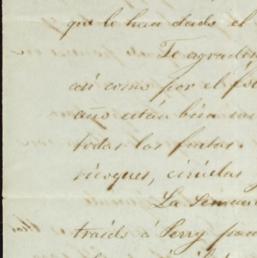 que le han dado el
Te agradez
así como por el fo
año están bien ca
todas las frutas
ricoques, ciruelas
La Seman
traido á Perry pa